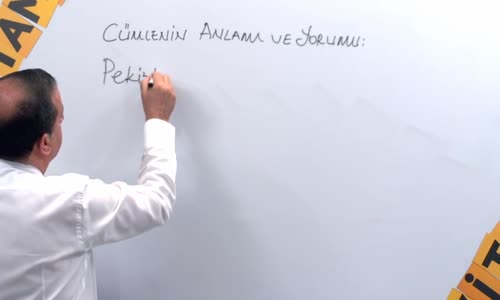 CÜMLENİN ANLAMI VE YORUMU:
Peki
TAM